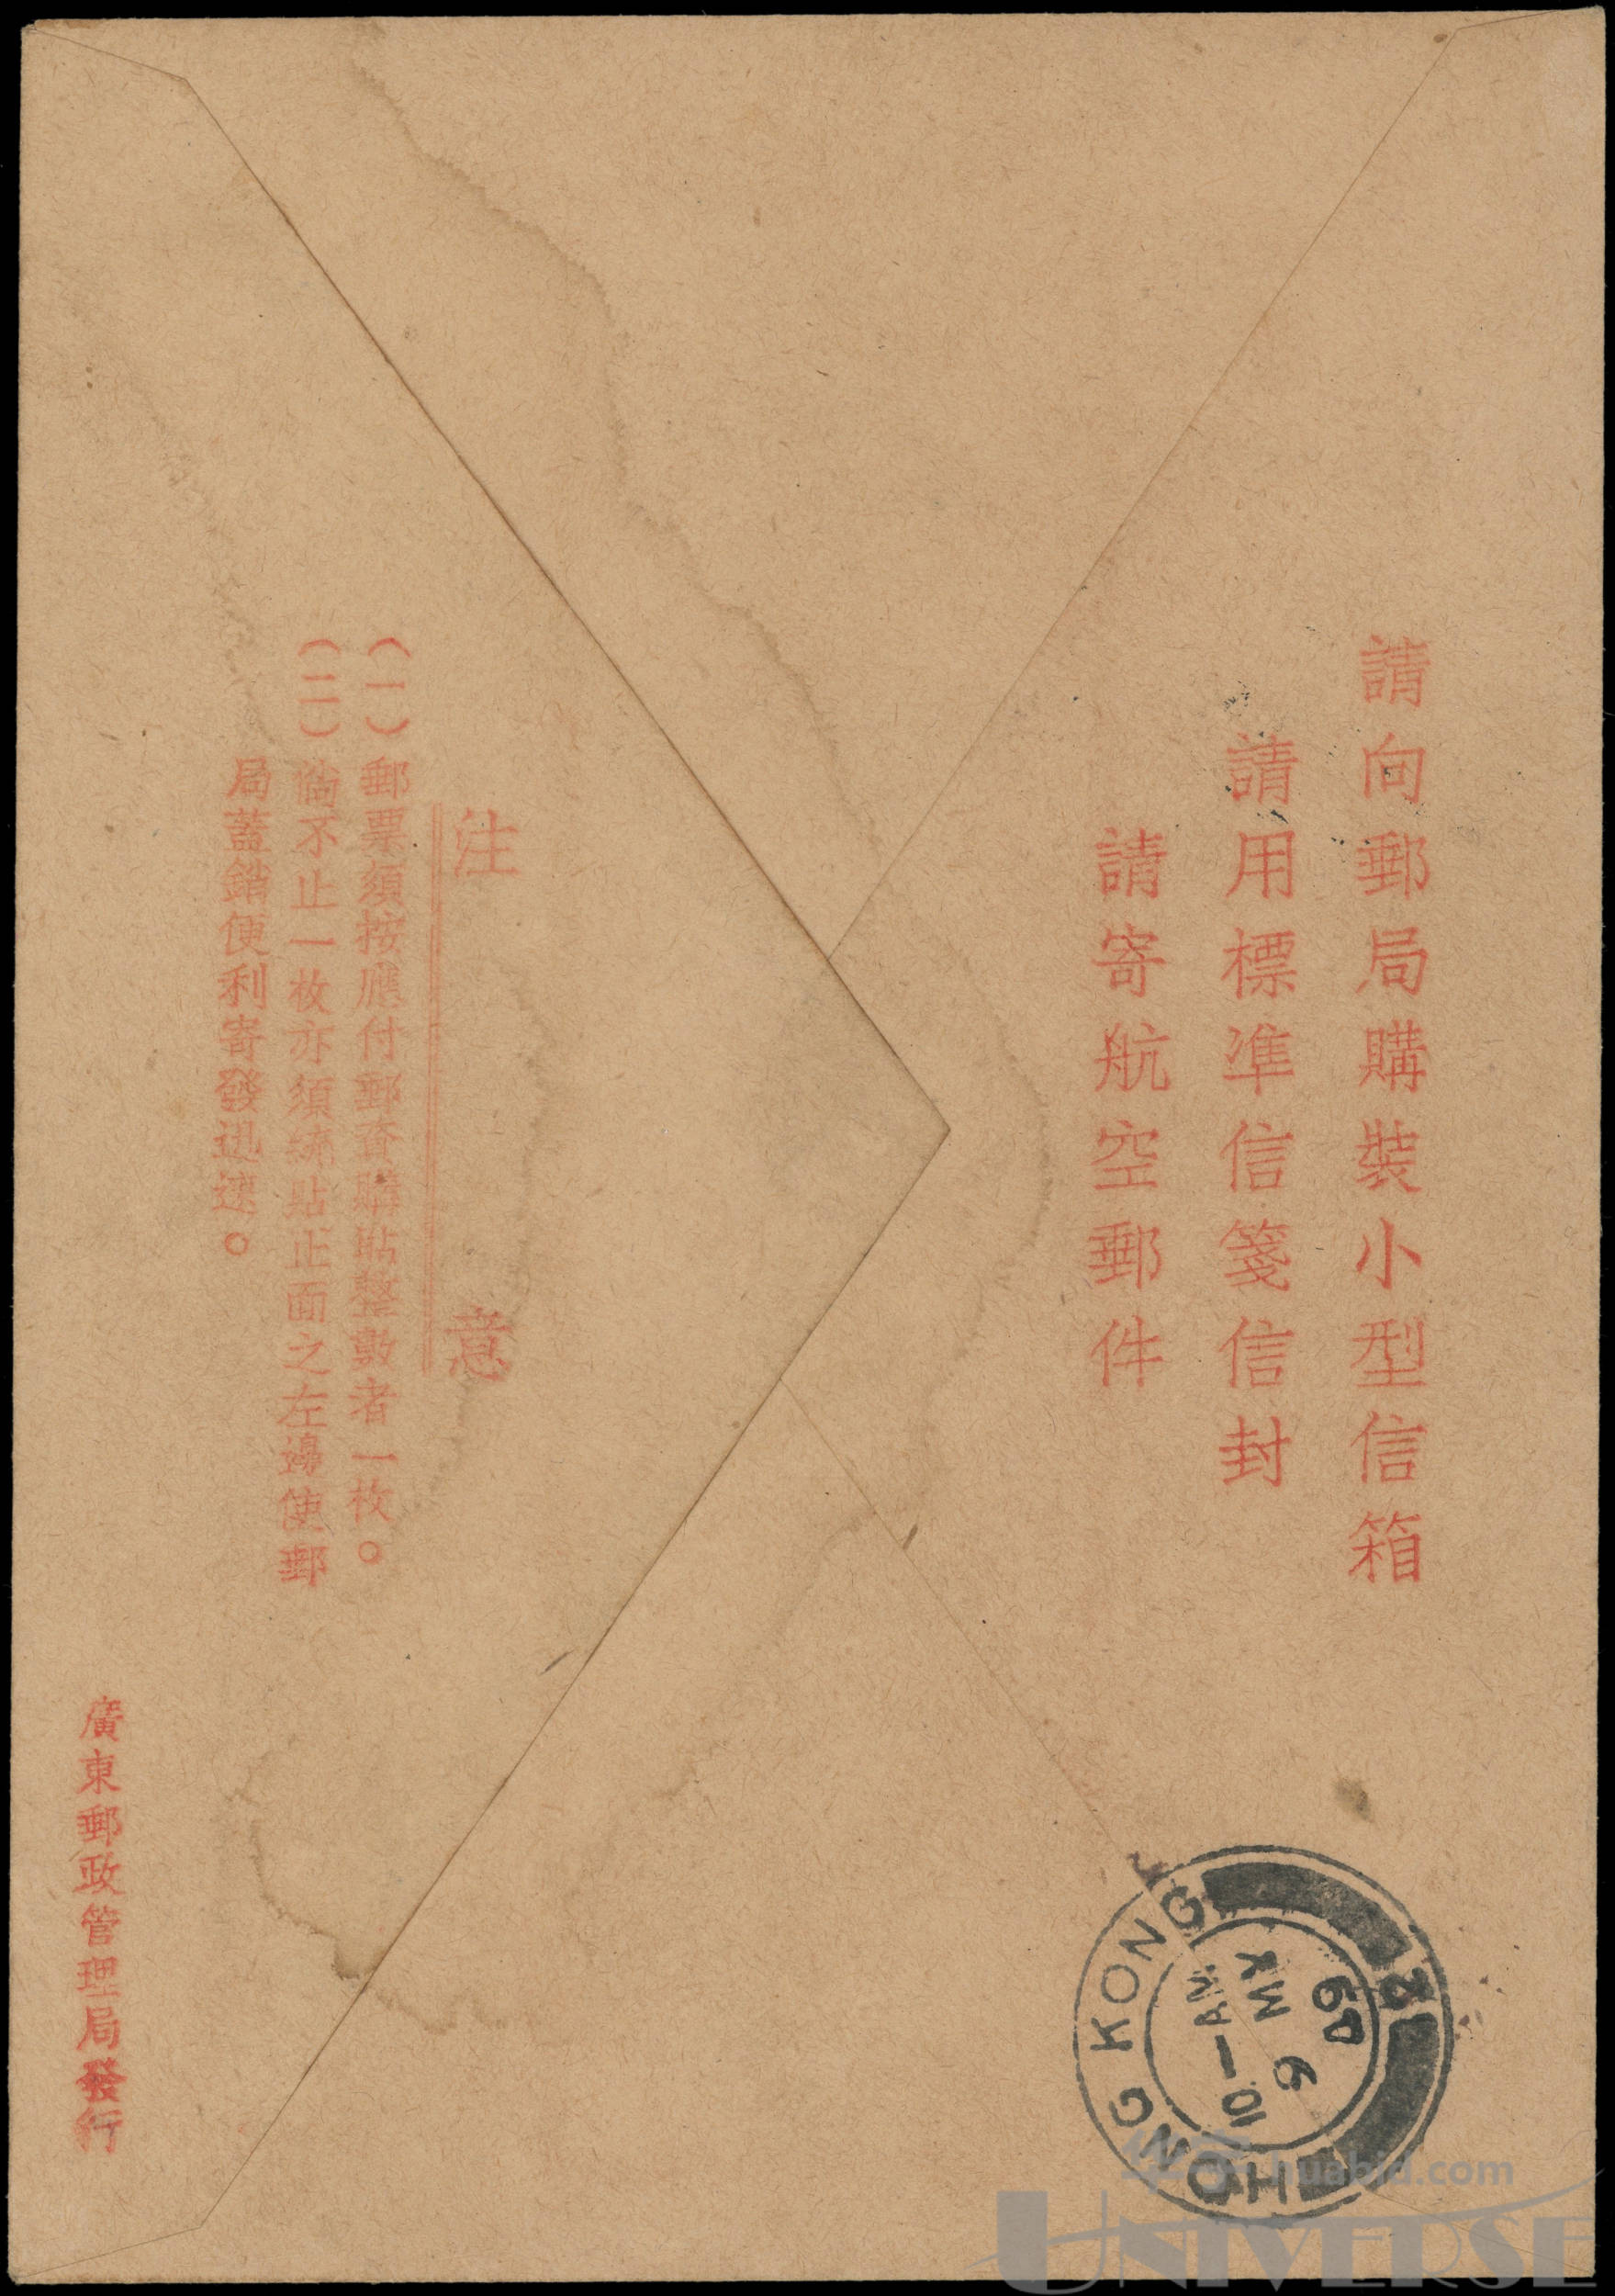 請向郵局購裝小型信箱
請用標準信箋信封
請寄航空郵件
注意
(一)郵票須按應付郵資購貼整數者一枚。
(二)倘不止一枚亦須統貼正面之左邊使郵
局蓋銷便利寄發迅速。
廣東郵政管理局發行
HONG KONG
2
10-AM
6 MY
huabid.com
UNIVERSE